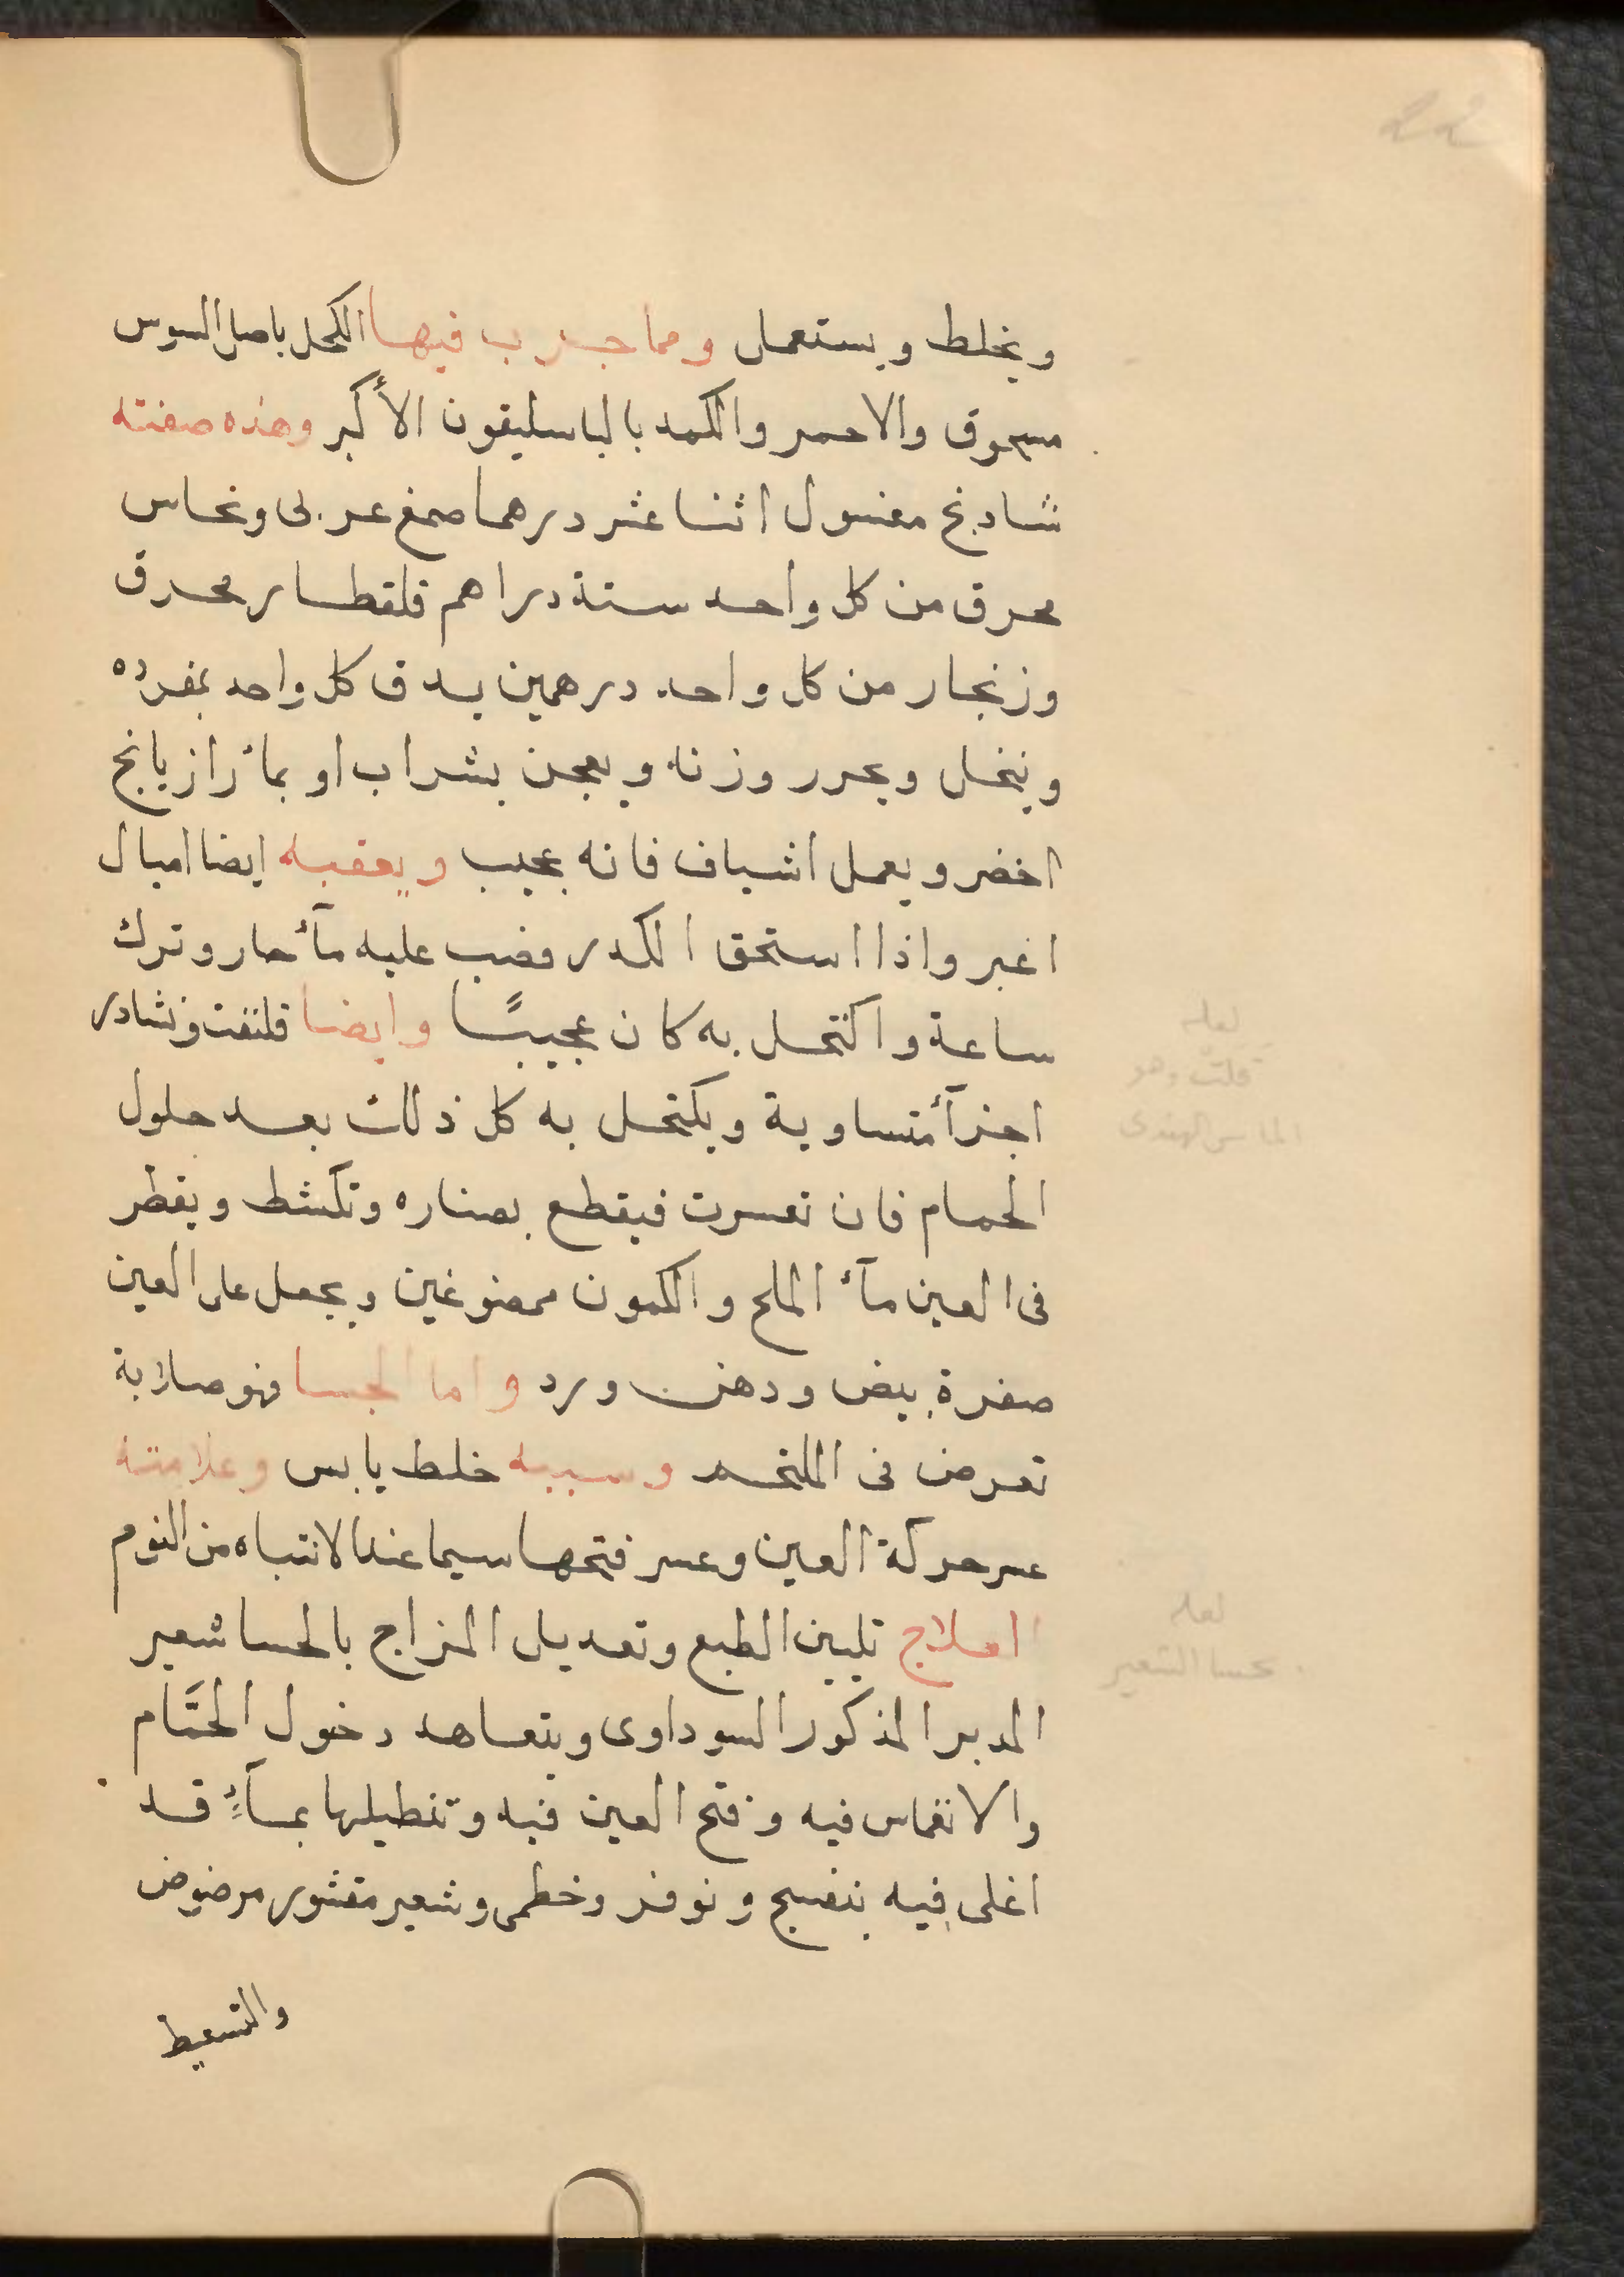 ويخلط ويستعمل ومما جرب فيها الكحل باصل السوس
مسحوق والاحمر والكمد بالباسليقون الأكبر وهذه صفته
شادنج مغسول اثنا عشر درهما صمغ عربى ونحاس
محرق من كل واحد ستة دراهم قلقطار محرق
وزنجار من كل واحد درهمين يدق كل واحد بمفرده
وينخل ويحرر وزنه ويعجن بشراب او بمأ رازيانج
اخضر ويعمل اشياف فانه عجيب ويعقبه ايضا اميال
اغبر واذا استحق الكدر وضب عليه مآء حار وترك
ساعة واكتحل به كان عجيبًا وايضا قلنفت ونشادر
اجزآء متساوية ويكتحل به كل ذلك بعد حلول
الحمام فان تعسرت فيقطع بصناره وتكشط ويقطر
فى العين مآء الملح والكمون ممضوغين ويجعل على العين
صفرة بيض ودهن ورد واما الجسا فهو صلابة
تعرض فى الملتحم وسببه خلط يابس وعلامته
عسر حركة العين وعسر فتحها سيما عند الانتباه من النوم
العلاج تليين الطبع وتعديل المزاج بالحسا شعير
المدبر المذكور السوداوى ويتعاهد دخول الحمَّام
والانغماس فيه وفتح العين فيه وتنطيلها بمآءٍ قد
اغلى فيه بنفسج ونوفر وخطمى وشعير مقشور مرضوض
والتسعيط
لعله
قلت وهو
الماس الهندى
لعله
بحسا الشعير